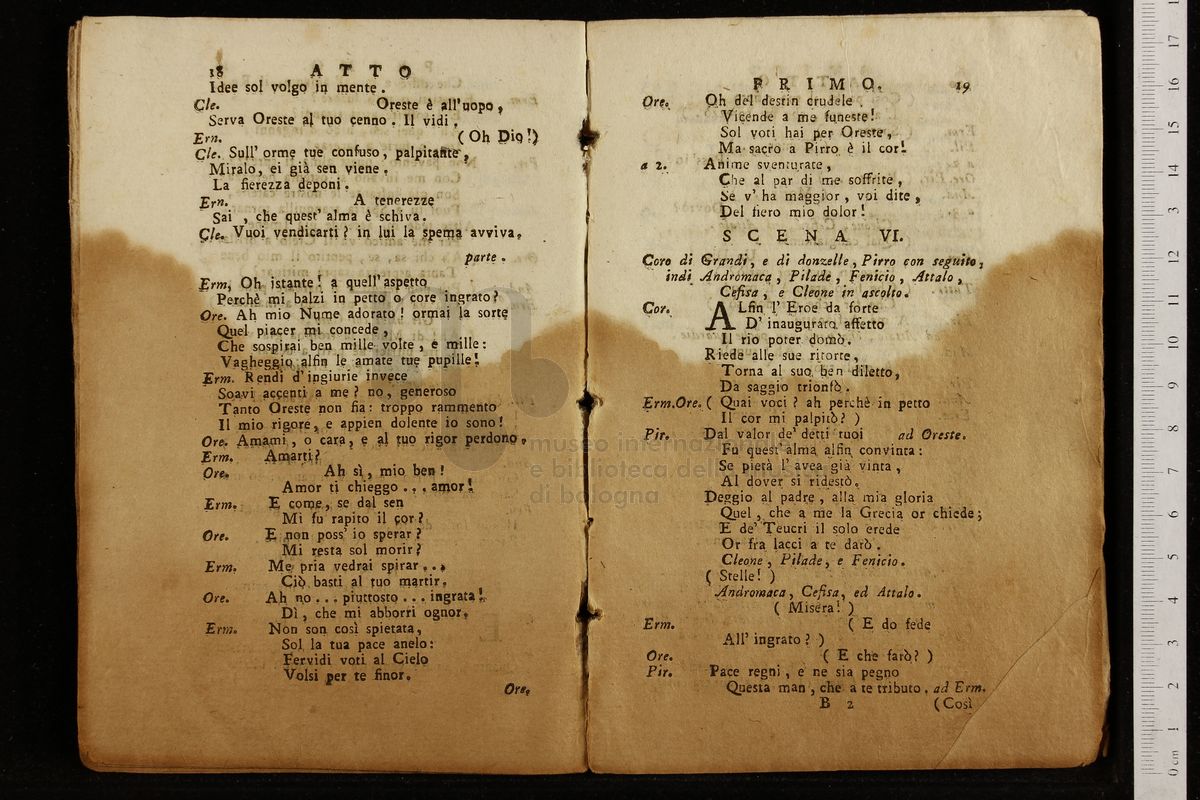 18 ATTO
Idee sol volgo in mente.
Cle. Oreste è all'uopo,
Serva Oreste al tuo cenno. Il vidi.
Ern. (Oh Dio!)
Cle. Sull' orme tue confuso, palpitante,
Miralo, ei già sen viene.
La fierezza deponi.
Ern. A tenerezze
Sai, che quest' alma è schiva.
Cle. Vuoi vendicarti? in lui la spema avviva,
parte.
Erm, Oh istante! a quell'aspetto
Perchè mi balzi in petto o core ingrato?
Ore. Ah mio Nume adorato! ormai la sorte
Quel piacer mi concede,
Che sospirai ben mille volte, e mille:
Vagheggio alfin le amate tue pupille!
Erm. Rendi d'ingiurie invece
Soavi accenti a me? no, generoso
Tanto Oreste non fia: troppo rammento
Il mio rigore, e appien dolente io sono!
Ore. Amami, o cara, e al tuo rigor perdono,
Erm. Amarti?
Ore. Ah sì, mio ben!
Amor ti chieggo... amor!
Erm. E come, se dal sen
Mi fu rapito il cor?
Ore. E non poss' io sperar?
Mi resta sol morir?
Erm. Me pria vedrai spirar...
Ciò basti al tuo martir.
Ore. Ah no... piuttosto... ingrata!
Dì, che mi abborri ognor,
Erm. Non son così spietata,
Sol la tua pace anelo:
Fervidi voti al Cielo
Volsi per te finor.
Ore,
PRIMO. 19
Ore. Oh del destin crudele
Vicende a me funeste!
Sol voti hai per Oreste,
Ma sacro a Pirro è il cor!
a 2. Anime sventurate,
Che al par di me soffrite,
Se v' ha maggior, voi dite,
Del fiero mio dolor!
SCENA VI.
Coro di Grandi, e di donzelle, Pirro con seguito,
indi Andromaca, Pilade, Fenicio, Attalo,
Cefisa, e Cleone in ascolto.
Cor. ALfin l' Eroe da forte
D' inaugurato affetto
Il rio poter domò.
Riede alle sue ritorte,
Torna al suo ben diletto,
Da saggio trionfò.
Erm.Ore. ( Quai voci? ah perchè in petto
Il cor mi palpitò? )
Pir. Dal valor de' detti tuoi ad Oreste.
Fu quest' alma alfin convinta:
Se pietà l' avea già vinta,
Al dover si ridestò.
Deggio al padre, alla mia gloria
Quel, che a me la Grecia or chiede;
E de' Teucri il solo erede
Or fra lacci a te darò.
Cleone, Pilade, e Fenicio.
( Stelle! )
Andromaca, Cefisa, ed Attalo.
( Misera! )
Erm. ( E do fede
All' ingrato? )
Ore. ( E che farò? )
Pir. Pace regni, e ne sia pegno
Questa man, che a te tributo, ad Erm.
B 2 (Così
museo internazionale
e biblioteca della
di bologna
0 cm 1 2 3 4 5 6 7 8 9 10 11 12 13 14 15 16 17